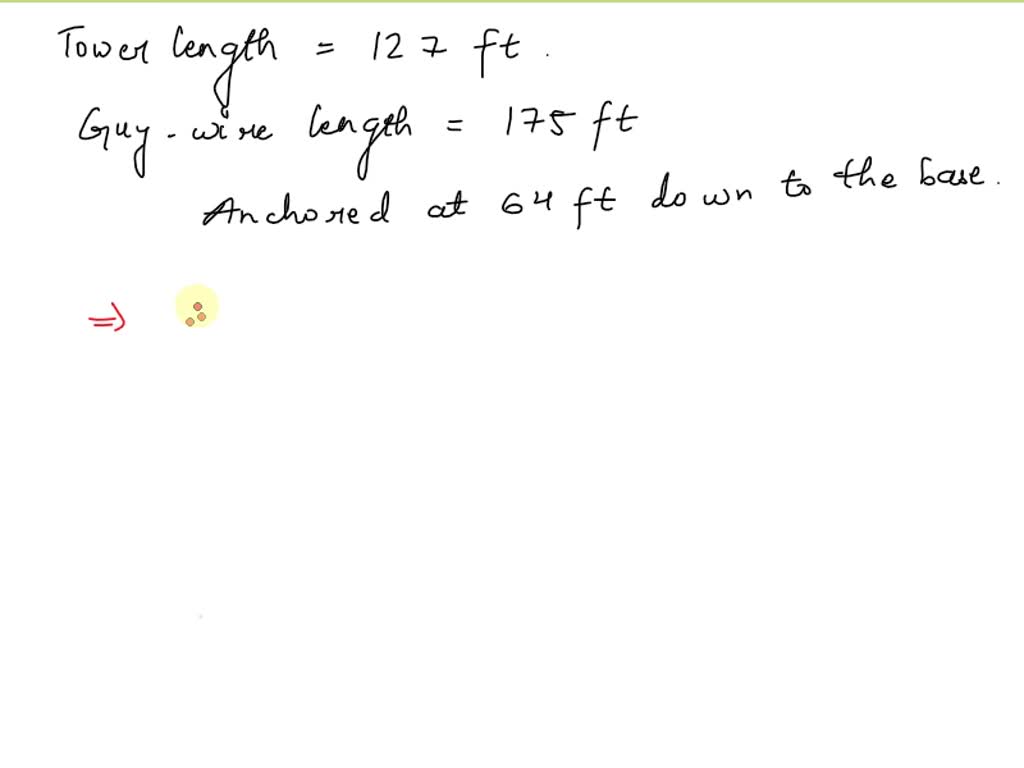 Tower length = 127 ft.
Guy-wire length = 175 ft
Anchored at 64 ft down to the base.
⇒